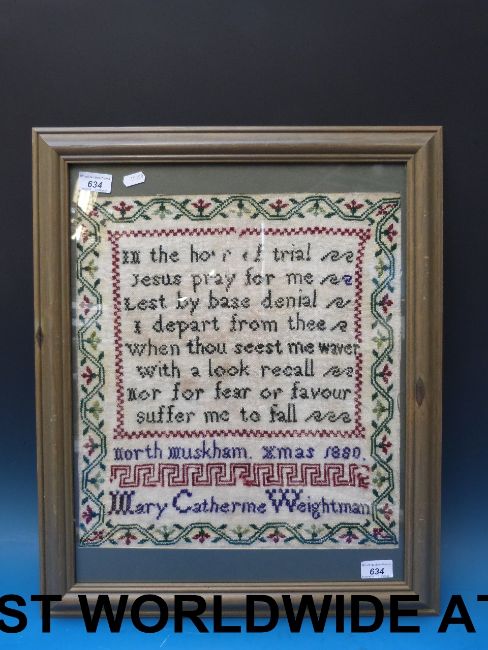 634
In the hour of trial
Jesus pray for me
Lest by base denial
I depart from thee
When thou seest me waver
With a look recall
Nor for fear or favour
suffer me to fall
North Muskham. Xmas 1880.
Mary Catherine Weightman
634
ST WORLDWIDE AT